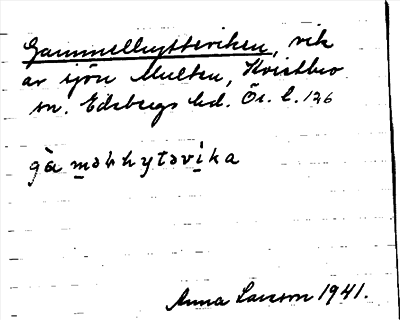 Gammelhytteviken, vik
av sjön Multen, Kvistbro
sn. Edsbergs hd. Ör. l. 126
gàməlhytəvíka
Anna Larsson 1941.